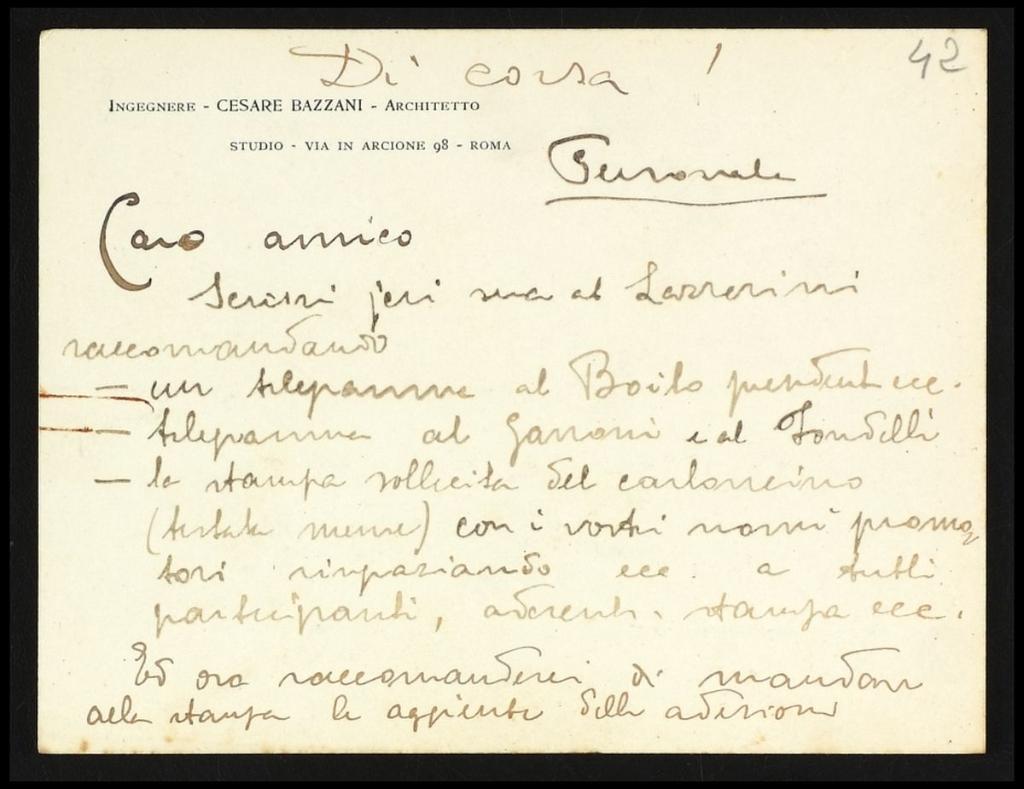 Di corsa !
42
INGEGNERE - CESARE BAZZANI - ARCHITETTO
STUDIO - VIA IN ARCIONE 98 - ROMA
Personale
Caro amico
Scrissi jeri sera al Lazzerini
raccomandando
— un telegramma al Boito presidente ecc.
— telegramma al e al Fondelli
— la stampa sollecita del cartoncino
(testata meme) con i vostri nomi promo,
tori ringraziando ecc. a tutti
partecipanti, aderenti, stampa ecc.
Ed ora raccomanderei di mandare
alla stampa le aggiunte delle adesioni